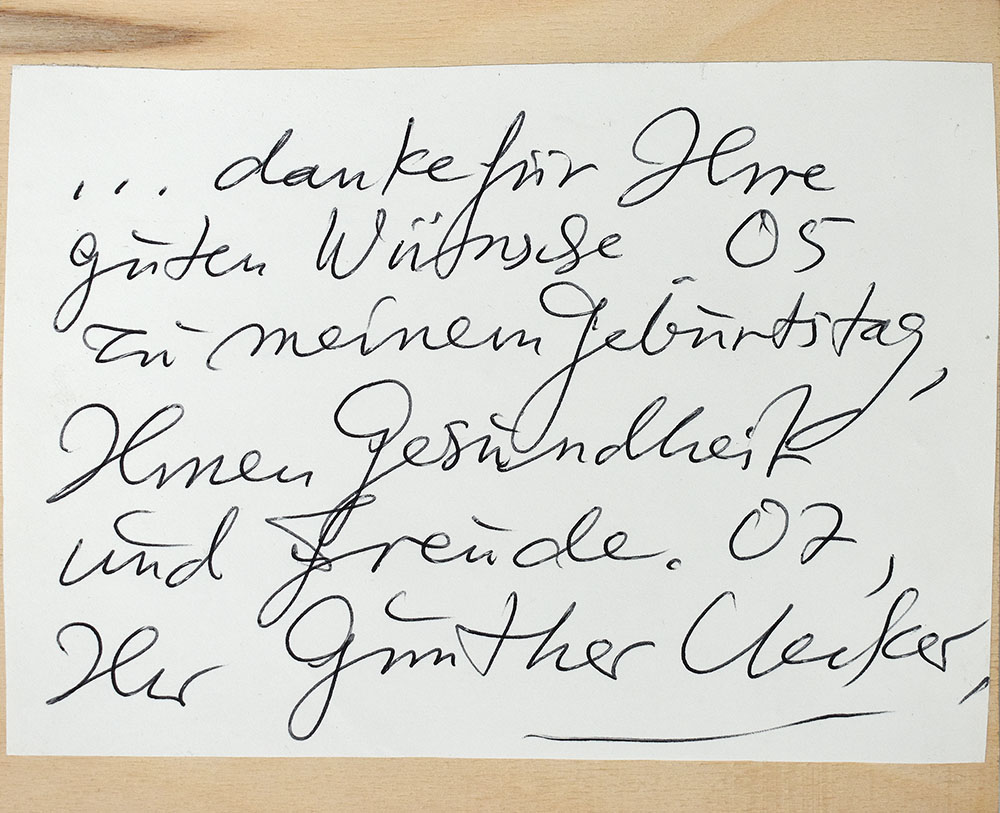 ... danke für Ihre
guten Wünsche 05
zu meinem Geburtstag,
Ihnen Gesundheit
und Freude. 07,
Ihr Günther Uecker,